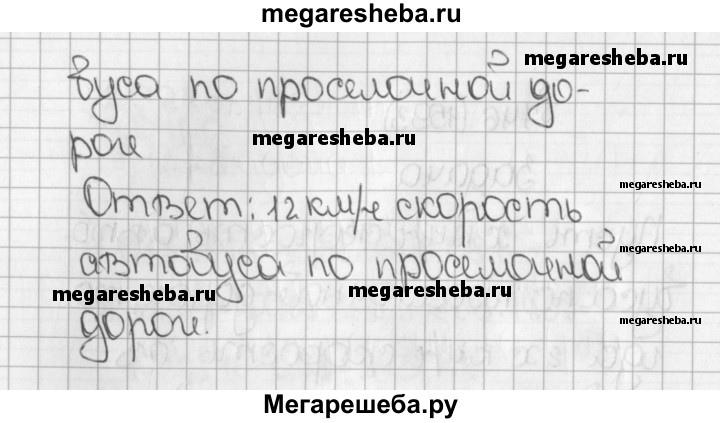 megaresheba.ru
megaresheba.ru
вуса по проселочной до-
megaresheba.ru
роги
megaresheba.ru
Ответ: 12 км/ч скорость
megaresheba.ru
автовуса по проселочной
megaresheba.ru
megaresheba.ru
megaresheba.ru
дороги.
Мегарешеба.ру